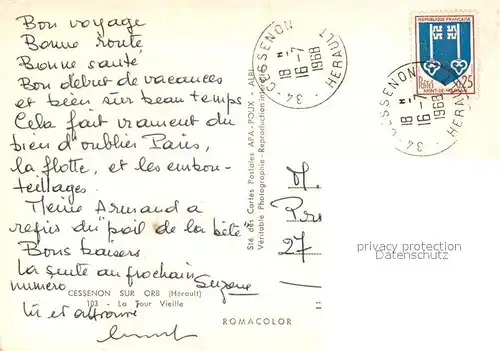 Bon voyage
Bonne route
Bonne santé
Bon début de vacances
et bien sûr beau temps
Cela fait vraiment du
bien d'oublier Paris,
la flotte, et les embou-
teillages.
Même Armand a
repris du "poil de la bête"
Bons baisers.
La suite au prochain
numéro
Suzane
CESSENON SUR ORB (Hérault)
103 - La Tour Vieille
ROMACOLOR
Sté des Cartes Postales APA-POUX - ALBI
Véritable Photographie - Reproduction interdite
34 - CESSENON
18 H
16-7
1968
HERAULT
REPUBLIQUE FRANÇAISE
Postes
0,25
MONT-DE-MARSAN
34 - CESSENON
18 H
16-7
1968
HERAULT
M.
27
privacy protection
service